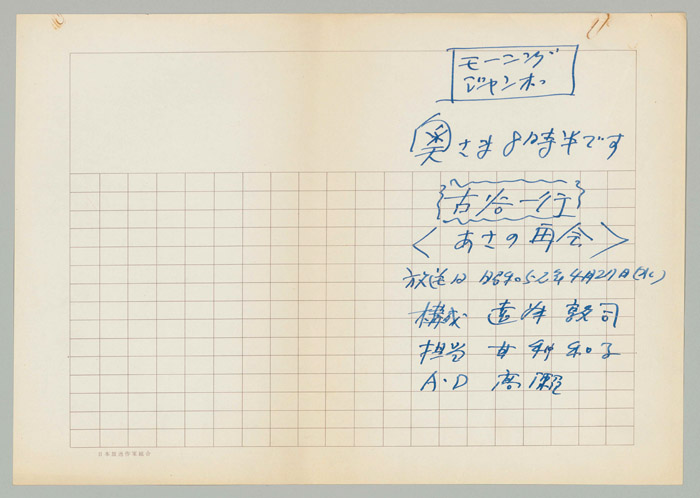 モーニング
ジャンボ
奥さま8時半です
古谷一行
〈あさの再会〉
放送日 昭和52年4月27日(水)
構成 遠峰敦司
担当 甘利和子
A・D 高瀬
日本放送作家組合